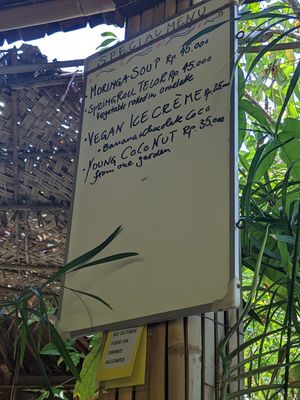 SPECIAL MENU
MORINGA SOUP Rp 45.000
SPRING ROLL TELOR Rp 45.000
Vegetable rolled in omelette
- VEGAN ICE CREME Rp 25.000
• Banana & Chocolate Coco
- YOUNG COCONUT Rp 35.000
from our garden
NO OUTSIDE
FOOD OR
DRINKS
ALLOWED